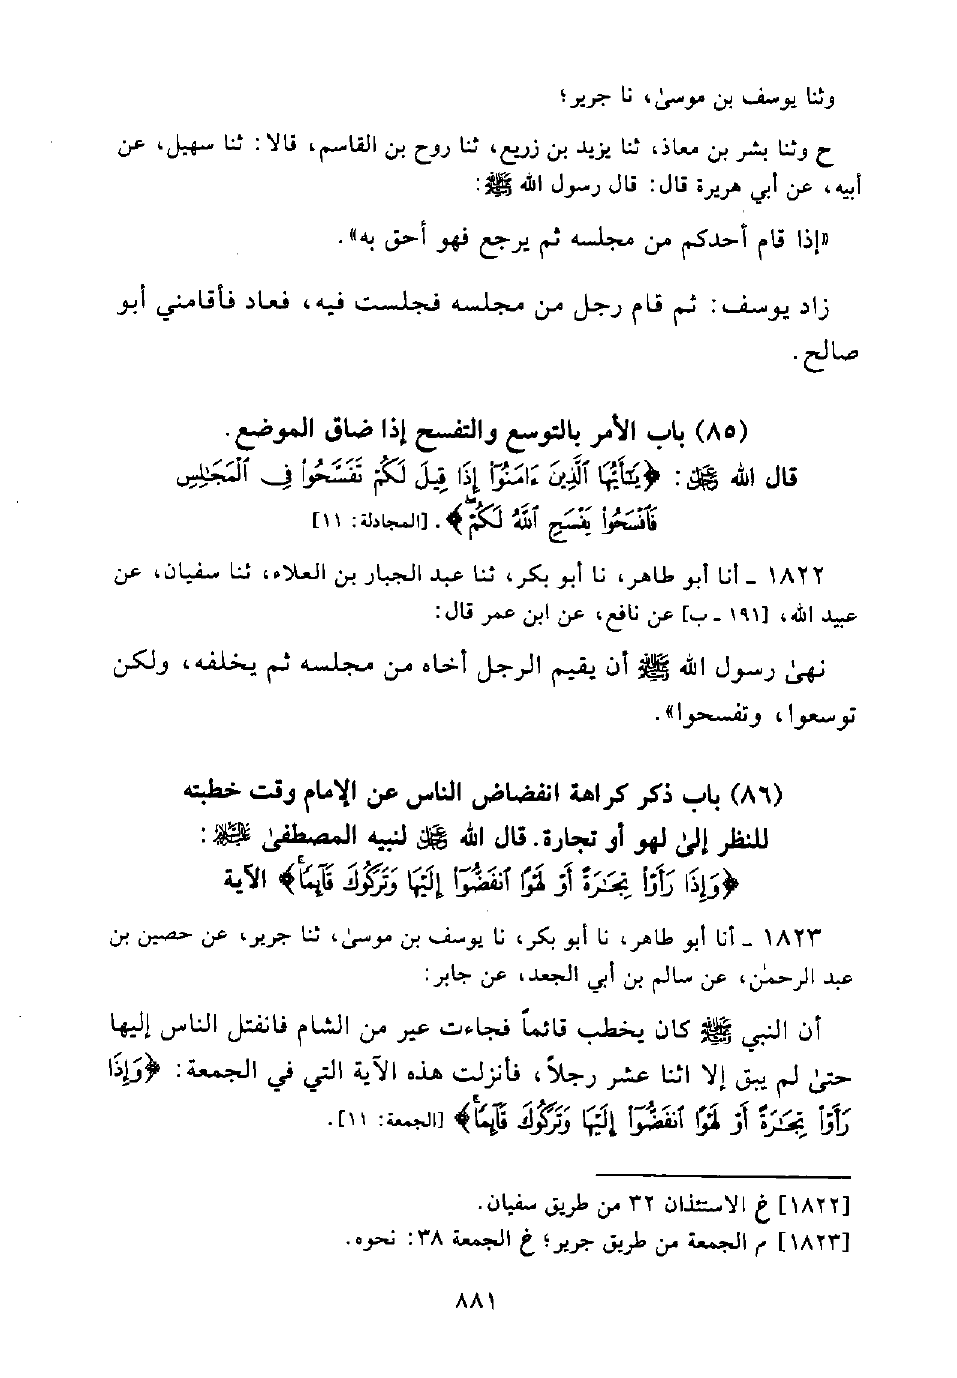 وثنا يوسف بن موسىٰ، نا جرير؛
ح وثنا بشر بن معاذ، ثنا يزيد بن زريع، ثنا روح بن القاسم، قالا: ثنا سهيل، عن
أبيه، عن أبي هريرة قال: قال رسول الله ﷺ:
«إذا قام أحدكم من مجلسه ثم يرجع فهو أحق به».
زاد يوسف: ثم قام رجل من مجلسه فجلست فيه، فعاد فأقامني أبو
صالح.
(٨٥) باب الأمر بالتوسع والتفسح إذا ضاق الموضع.
قال الله ﷻ: ﴿يَٰٓأَيُّهَا ٱلَّذِينَ ءَامَنُوٓاْ إِذَا قِيلَ لَكُمْ تَفَسَّحُواْ فِى ٱلْمَجَٰلِسِ
فَٱفْسَحُواْ يَفْسَحِ ٱللَّهُ لَكُمْۖ﴾. [المجادلة: ١١]
١٨٢٢ ـ أنا أبو طاهر، نا أبو بكر، ثنا عبد الجبار بن العلاء، ثنا سفيان، عن
عبيد الله، [١٩١ ـ ب] عن نافع، عن ابن عمر قال:
نهىٰ رسول الله ﷺ أن يقيم الرجل أخاه من مجلسه ثم يخلفه، ولكن
توسعوا، وتفسحوا».
(٨٦) باب ذكر كراهة انفضاض الناس عن الإمام وقت خطبته
للنظر إلىٰ لهو أو تجارة. قال الله ﷻ لنبيه المصطفىٰ ﷺ:
﴿وَإِذَا رَأَوْاْ تِجَٰرَةً أَوْ لَهْوًا ٱنفَضُّوٓاْ إِلَيْهَا وَتَرَكُوكَ قَآئِمًاۚ﴾ الآية
١٨٢٣ ـ أنا أبو طاهر، نا أبو بكر، نا يوسف بن موسىٰ، ثنا جرير، عن حصين بن
عبد الرحمٰن، عن سالم بن أبي الجعد، عن جابر:
أن النبي ﷺ كان يخطب قائماً فجاءت عير من الشام فانفتل الناس إليها
حتىٰ لم يبق إلا اثنا عشر رجلاً، فأنزلت هذه الآية التي في الجمعة: ﴿وَإِذَا
رَأَوْاْ تِجَٰرَةً أَوْ لَهْوًا ٱنفَضُّوٓاْ إِلَيْهَا وَتَرَكُوكَ قَآئِمًاۚ﴾ [الجمعة: ١١].
[١٨٢٢] خ الاستئذان ٣٢ من طريق سفيان.
[١٨٢٣] م الجمعة من طريق جرير؛ خ الجمعة ٣٨: نحوه.
٨٨١